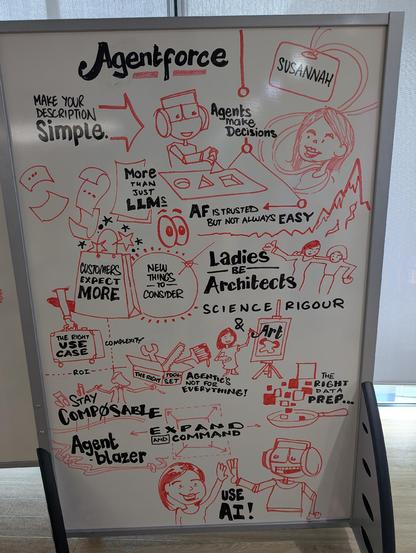 Agentforce
SUSANNAH
MAKE YOUR
DESCRIPTION
Simple.
Agents
make
Decisions
More
THAN
JUST
LLMs
AF IS TRUSTED
BUT NOT ALWAYS EASY
CUSTOMERS
EXPECT
MORE
NEW
THINGS
TO
CONSIDER
Ladies
BE
Architects
SCIENCE RIGOUR
& Art
THE RIGHT
USE
CASE
COMPLEXITY
ROI
THE RIGHT TOOL
SET
AGENTIC'S
NOT FOR
EVERYTHING!
THE
RIGHT
DATA
PREP...
STAY
COMPØSABLE
EXPAND
AND COMMAND
Agent
-blazer
USE
AI!